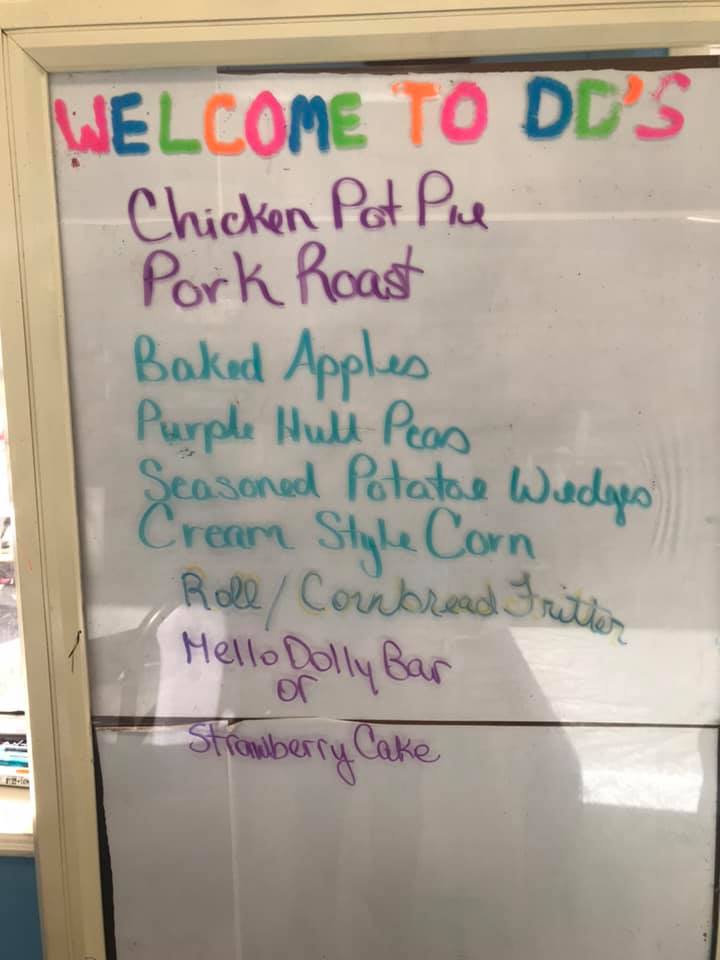 WELCOME TO DD'S
Chicken Pot Pie
Pork Roast
Baked Apples
Purple Hull Peas
Seasoned Potatoe Wedges
Cream Style Corn
Roll/Cornbread Fritter
Hello Dolly Bar
or
Strawberry Cake